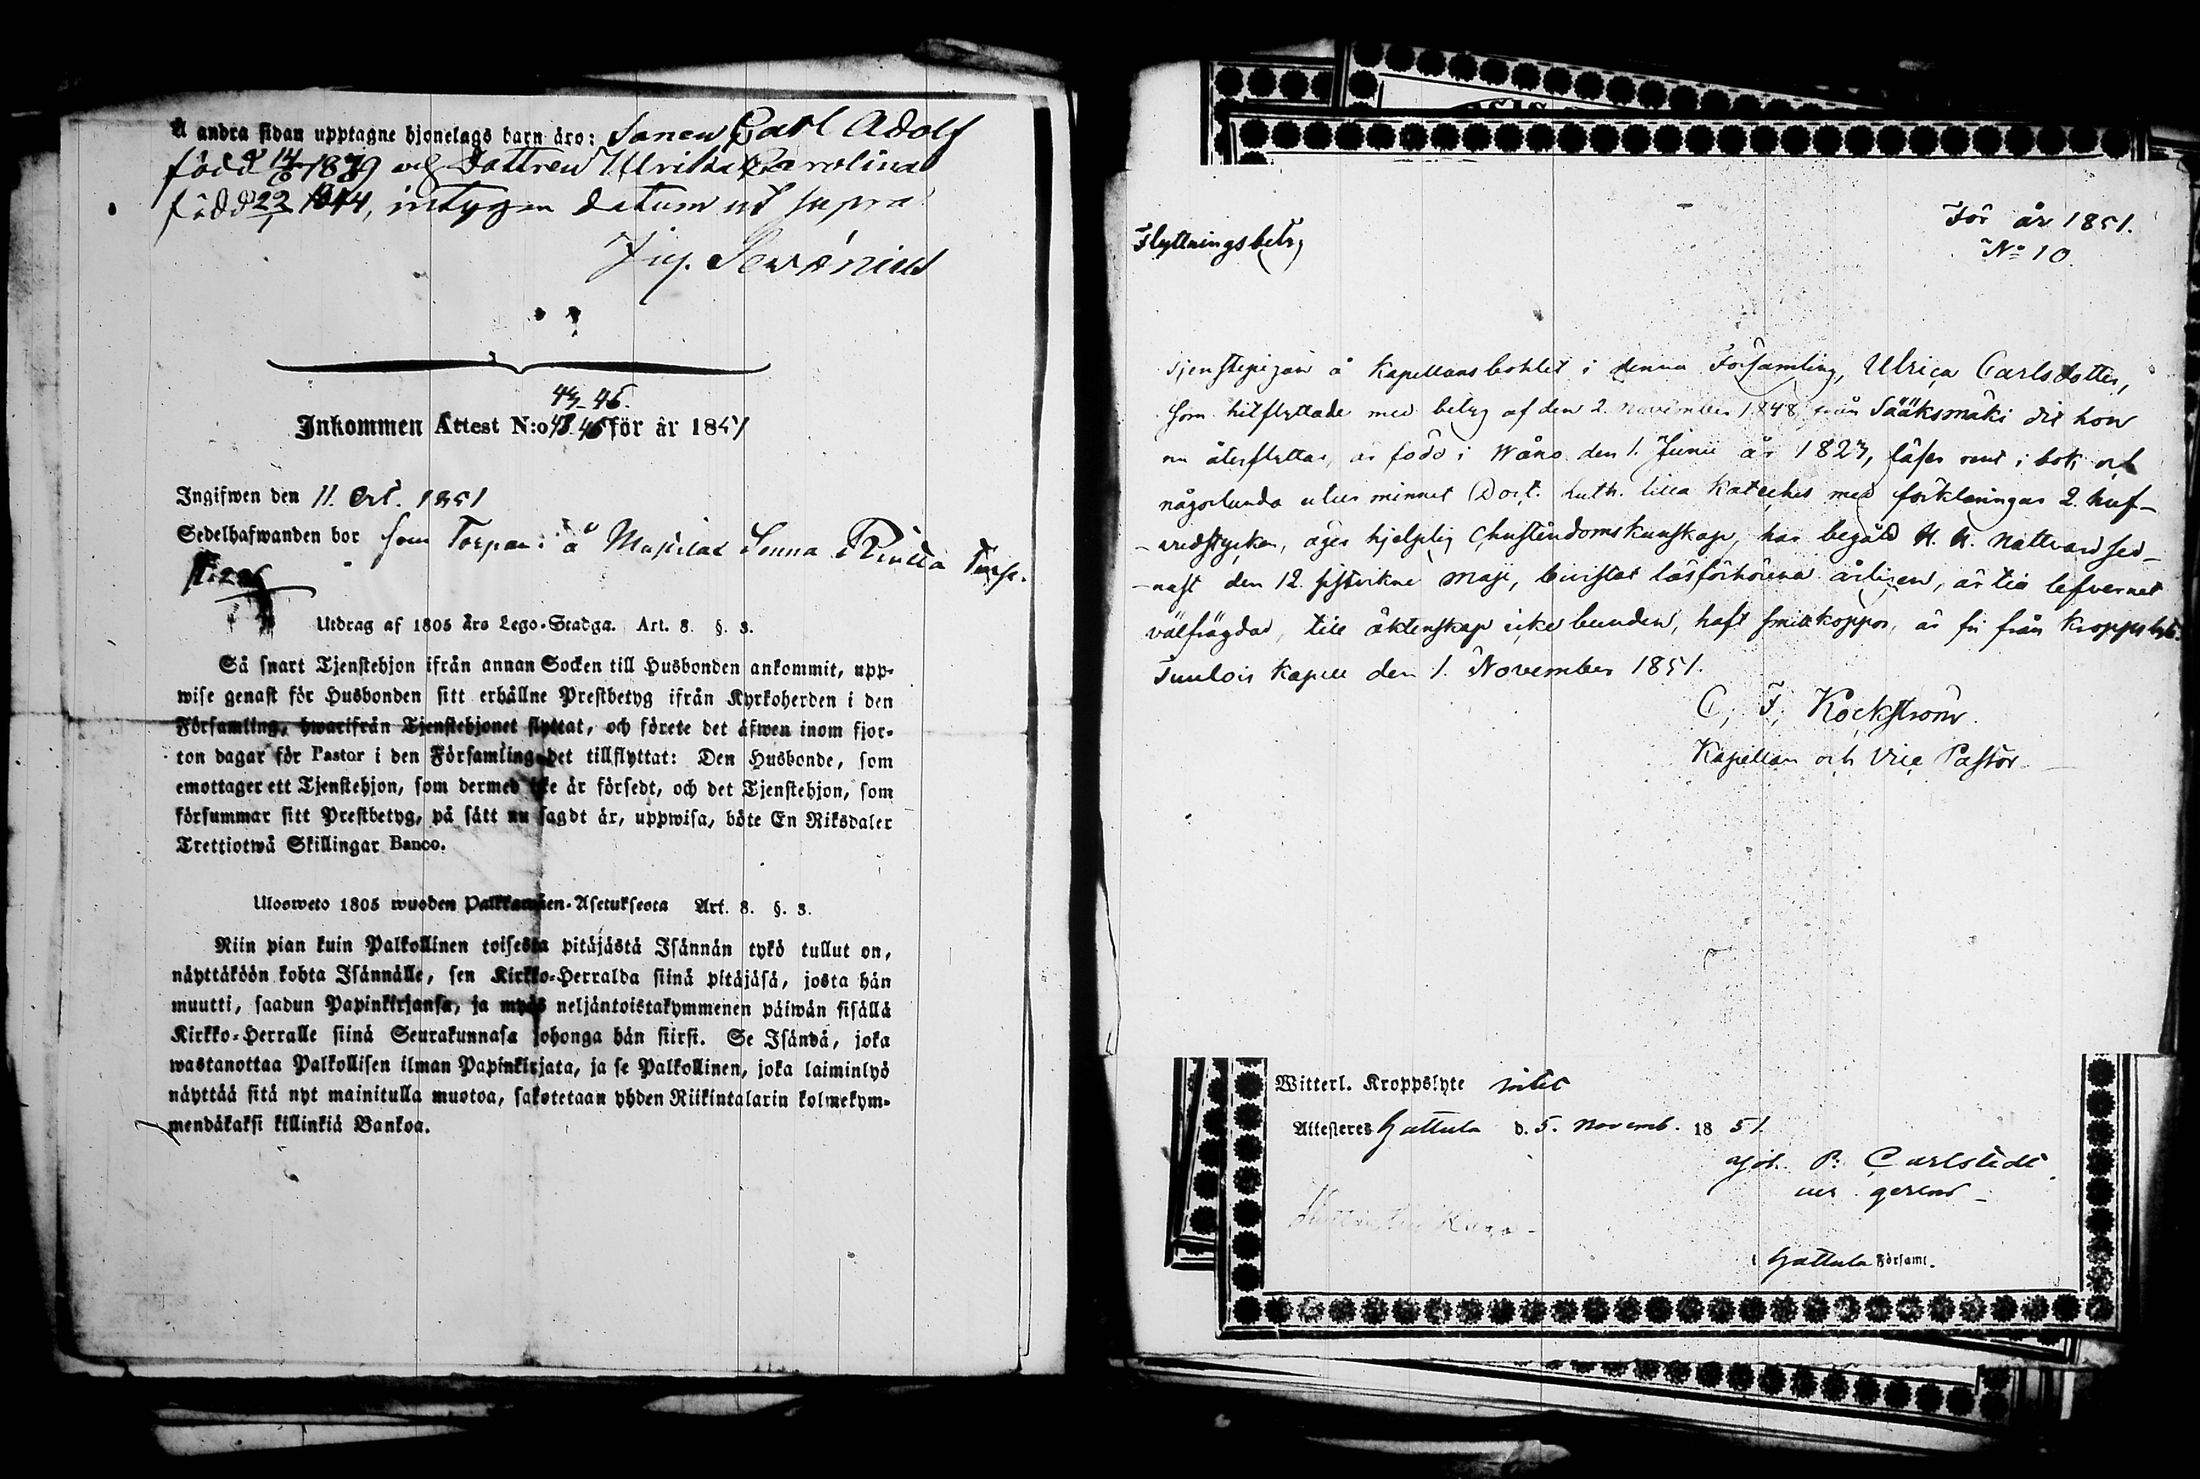 Å andra sidan upptagne hjonelags barn äro: Sonen Carl Adolf
född 14/6 1839 och Dottren Ulrika Carolina
född 22/7 1844, intygar datum ut supra
44-46.
Inkommen Attest N:o 43.46 för år 1851
Ingifwen den 11. Oct. 1851
Sedelhafwanden bor som Torpare å
Utdrag af 1805 års Lego-Stadga. Art. 8. §. 3.
Så snart Tjenstehjon ifrån annan Socken till Husbonden ankommit, upp-
wise genast för Husbonden sitt erhållne Prestbetyg ifrån Kyrkoherden i den
Församling, hwarifrån Tjenstehjonet flyttat, och förete det äfwen inom fjor-
ton dagar för Pastor i den Församling det tillflyttat: Den Husbonde, som
emottager ett Tjenstehjon, som dermed icke är försedt, och det Tjenstehjon, som
försummar sitt Prestbetyg, på sätt nu sagdt är, uppwisa, böte En Riksdaler
Trettiotwå Skillingar Banco.
Ulosweto 1805 wuoden Palkkawäen-Asetuksesta Art. 8. §. 3.
Niin pian kuin Palkollinen toisesta pitäjästä Isännän tykö tullut on,
näyttäköön kohta Isännälle, sen Kirkko-Herralda siinä pitäjäsä, josta hän
muutti, saadun Papinkirjansa, ja myös neljäntoistakymmenen päiwän sisällä
Kirkko-Herralle siinä Seurakunnasa johonga hän siirsi. Se Isändä, joka
wastanottaa Palkollisen ilman Papinkirjata, ja se Palkollinen, joka laiminlyö
näyttää sitä nyt mainitulla muotoa, sakotetaan yhden Riikintalarin kolmekym-
mendäkaksi killinkiä Bankoa.
För år 1851.
No 10.
Flyttningsbetyg
Tjenstepigan å Kapellansbohlet i denna Församling, Ulrica Carlsdotter,
som hitflyttade med betyg af den 2. November 1848 från Sääksmäki dit hon
nu återflyttar, är född i Wåno den 1. Junii år 1827, läser rent i bok, och
någorlunda utur minnet Doct. Luth. lilla Kateches med förklaringar 2. huf-
-vudstycken, äger hjelplig Christendomskunskap, har begådt H. H. Nattvard sed-
-nast den 12. sistvikne Maji, bivistat läsförhören årligen, är till lefvernet
välfrägdad, till äktenskap icke bunden, haft smittkoppor, är fri från Kroppslyte.
Tuulois Kapell den 1. November 1851.
C. F. Kockström.
Kapellan och Vice Pastor
Witterl. Kroppslyte intet
Attesteres Hattula d. 5. Novemb. 1851.
Joh. P. Carlstedt
vices gerens
i Hattula Församl.